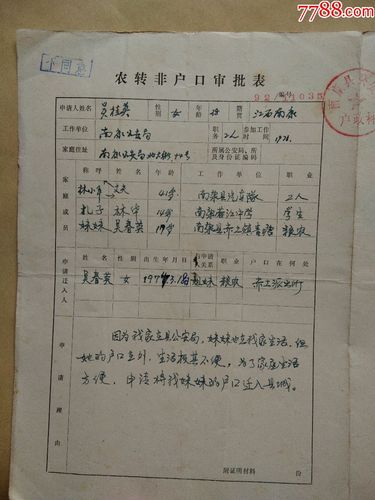 7788.com
不同意
农转非户口审批表
编号
92 11035
申请人姓名 吴桂英 性别 女 年龄 籍贯 江西南康
工作单位 南康公安局 职务 工人 参加工作
家庭住址 南康公安局 所属公安局、所及身份证编码
称呼 姓名 年龄 工作单位 职业
家庭成员
丈夫 41岁 南康县汽车队 工人
儿子 林宇 14岁 南康蓉江中学 学生
妹妹 吴春英 南康县赤土镇 粮农
申请迁入人
姓名 性别 出生年月日 与申请人关系 职业 户口在何处
吴春英 女 姐妹 粮农 赤土派出所
申请理由
因为我家在县公安局,妹妹也在我家生活,但
她的户口在外,生活极其不便,为了家庭生活
方便,申请将我妹妹的户口迁入县城。
附证明材料 份